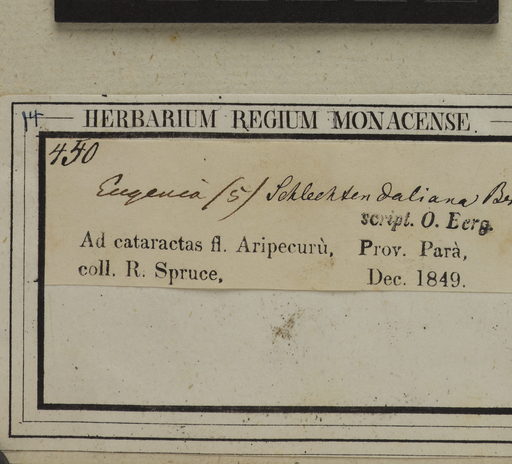 14
HERBARIUM REGIUM MONACENSE.
450
Eugenia (5) Schlechtendaliana Be
script. O. Berg.
Ad cataractas fl. Aripecurù, Prov. Parà,
coll. R. Spruce, Dec. 1849.